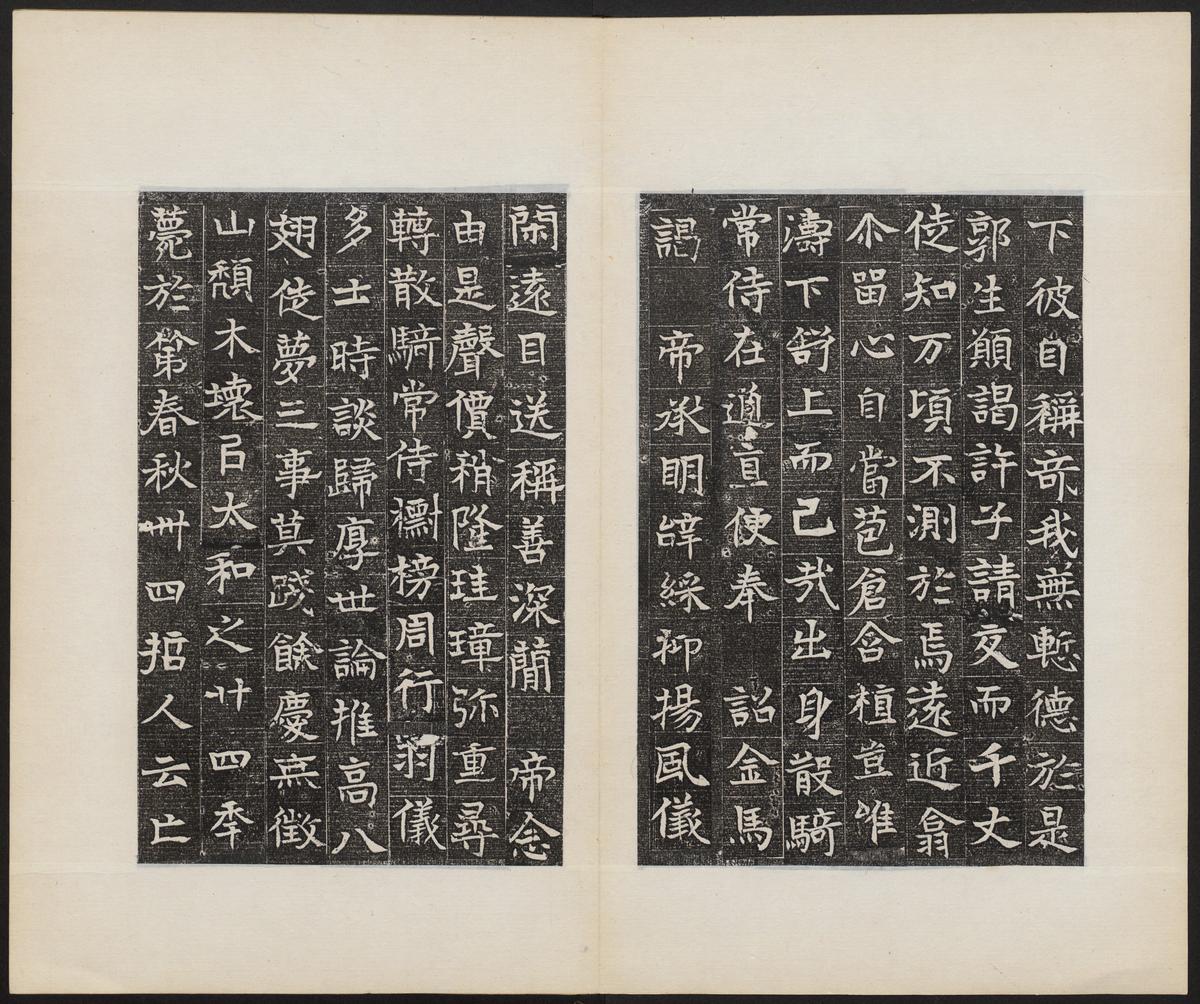 下彼自稱奇我無慙德於是
郭生願謁許子請交而千丈
徒知万頃不測於焉遠近翕
尒留心自當苞倉含植豈唯
濤下舒上而已哉出身散騎
常侍在遒直便奉 詔金馬
謁 帝承明辝綵抑揚風儀
閑遠目送稱善深簡 帝念
由是聲價稍隆珪璋弥重尋
轉散騎常侍榜周行羽儀
多士時談歸厚世論推高八
翅徒夢三事莫踐餘慶無徵
山頹木壞㠯太和之廿四年
薨於第春秋卌四哲人云亡